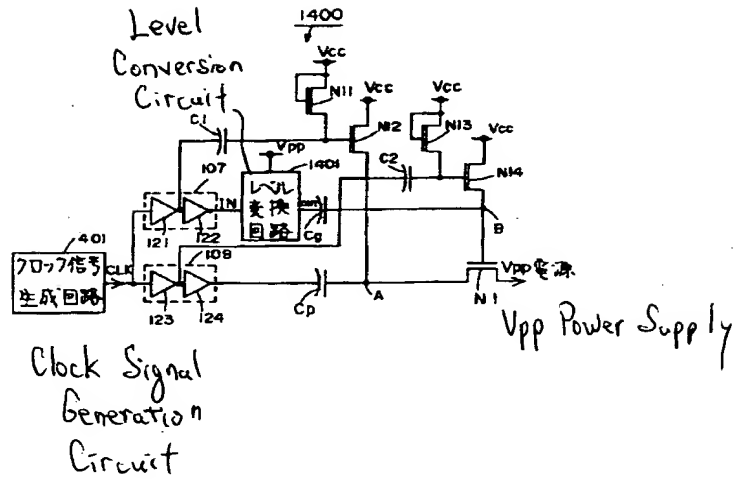 Level
Conversion
Circuit
1400
Vcc
N11
Vcc
N12
Vcc
N13
Vcc
N14
C1
Vpp
1401
C2
レベル
変換
回路
107
IN
OUT
Cg
B
121
122
401
クロック信号
生成回路
CLK
109
123
124
Cp
A
N1
Vpp電源
Vpp Power Supply
Clock Signal
Generation
Circuit